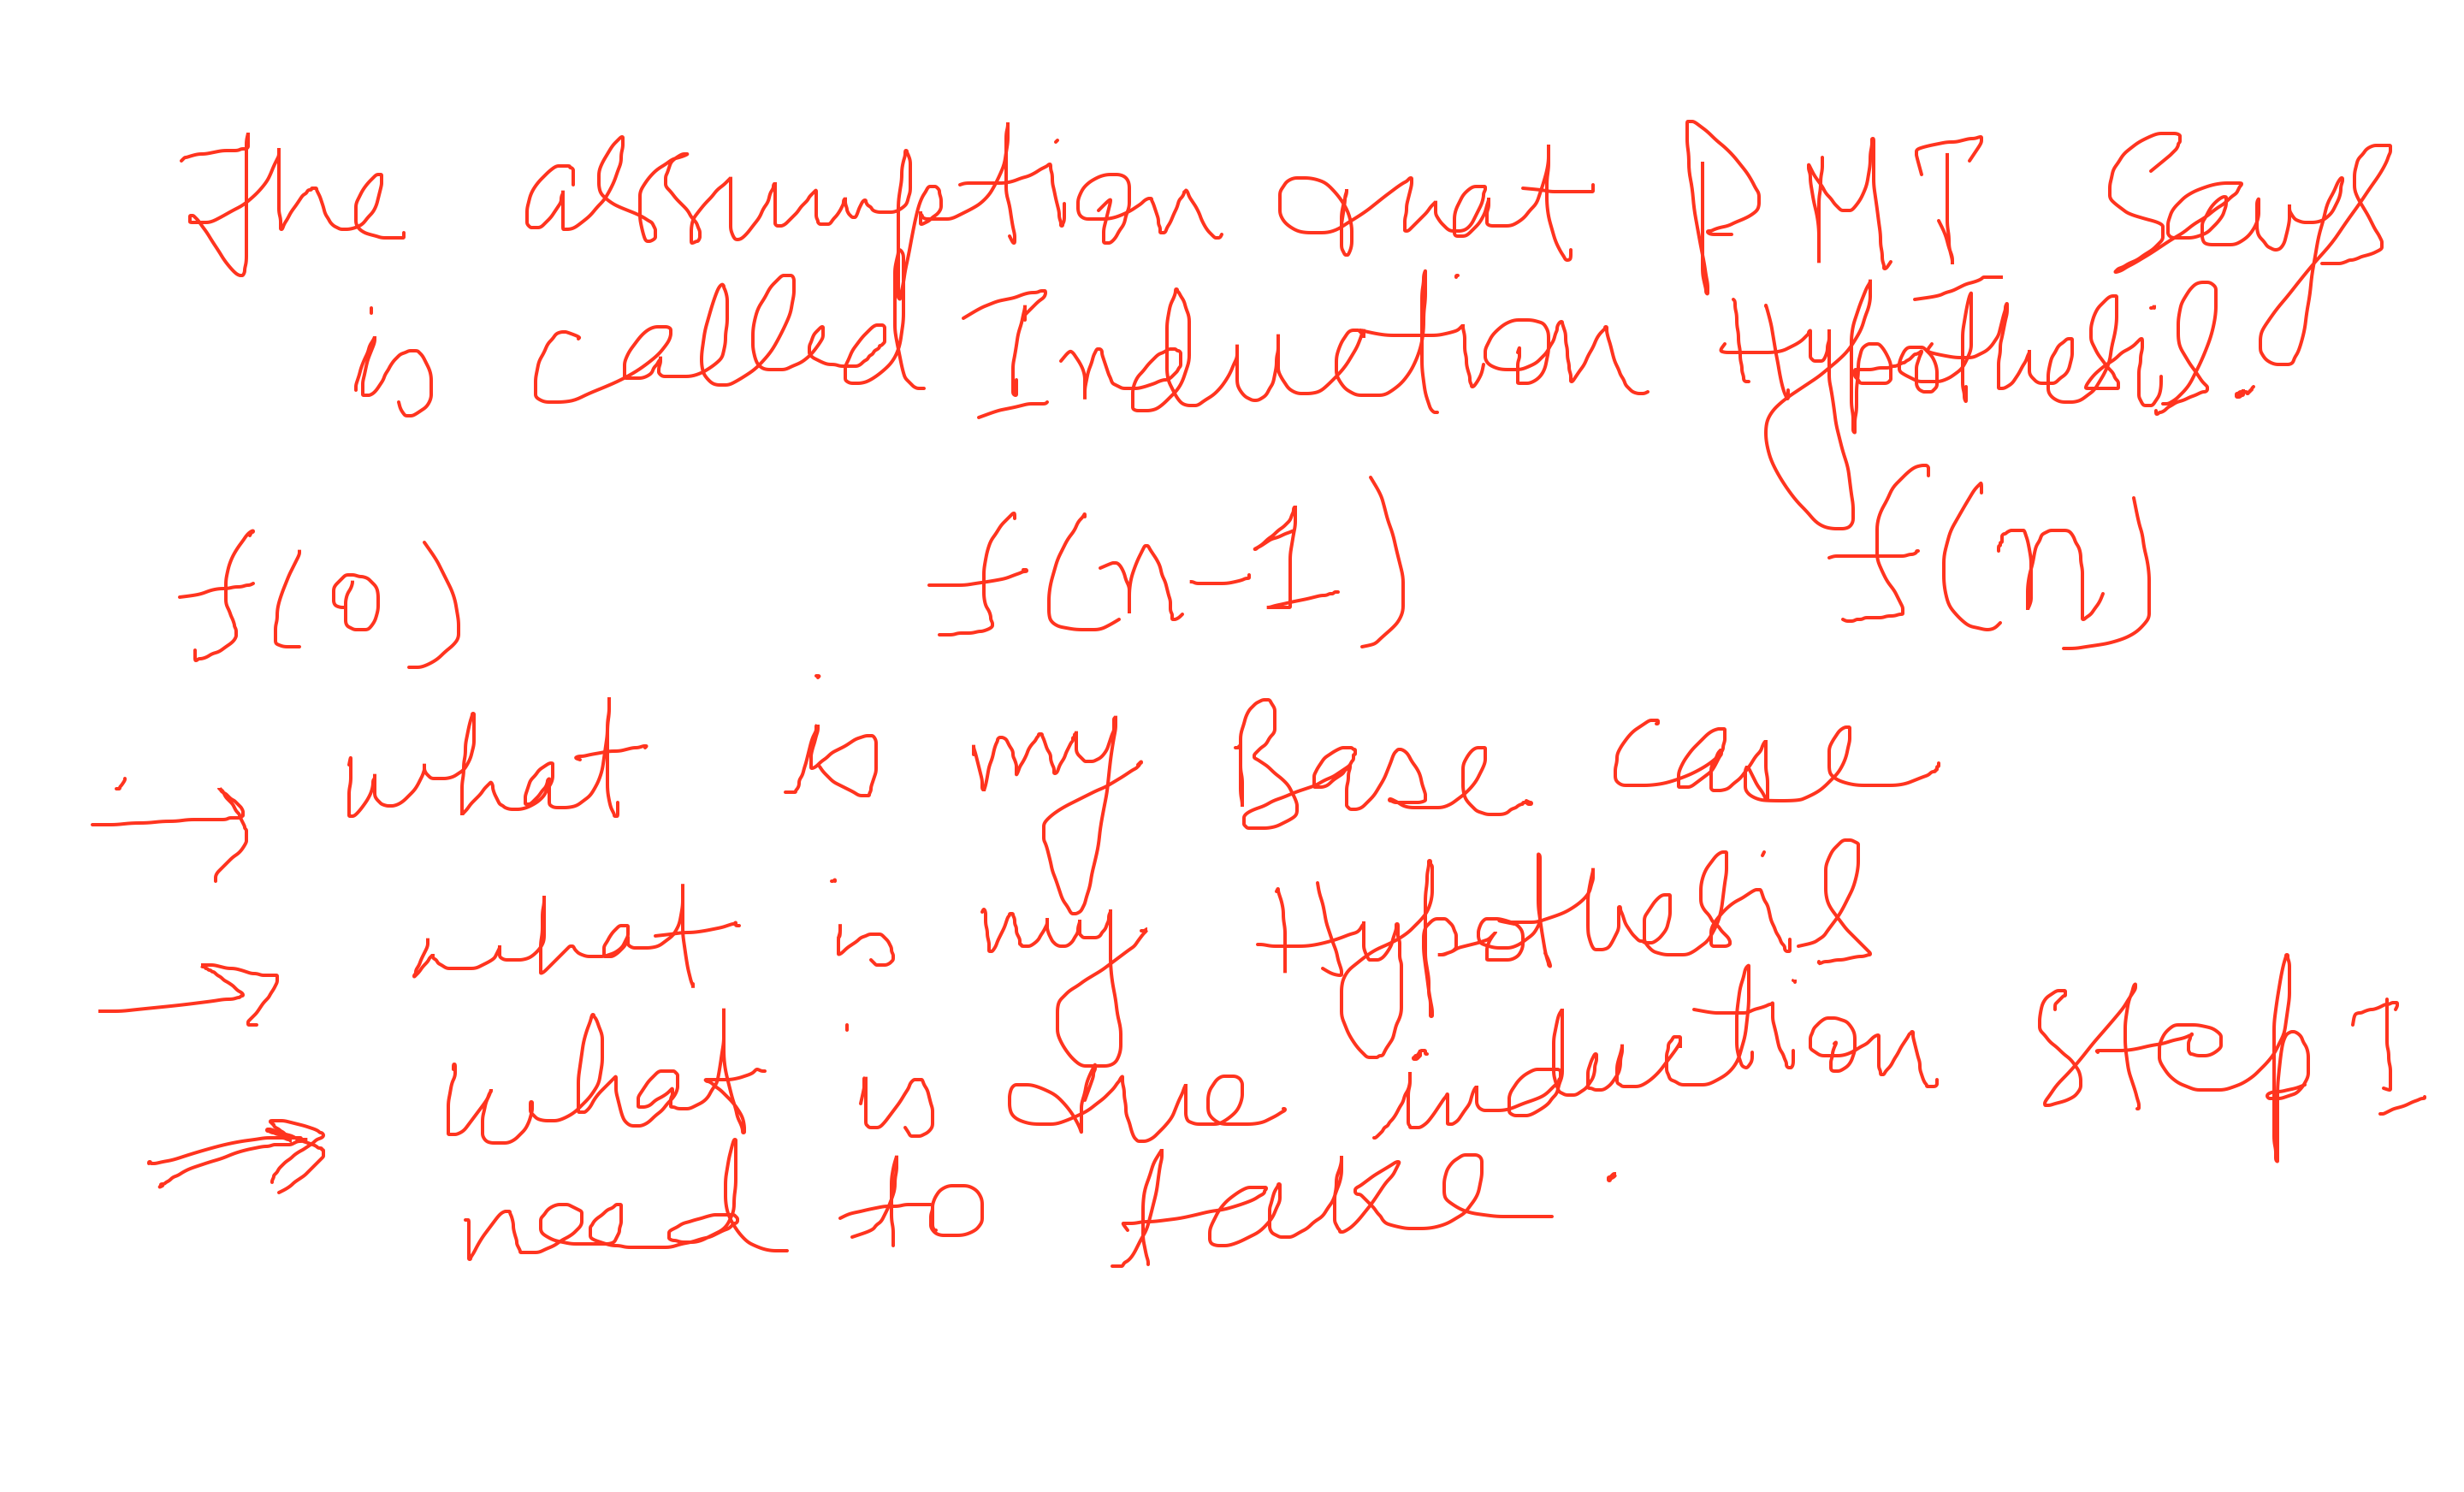 The assumption that PMI says
is called Induction Hypothesis.
f(0) f(n-1) f(n)
→ what is my Base case
→ what is my Hypothesis
→ what is the induction step I
need to take.